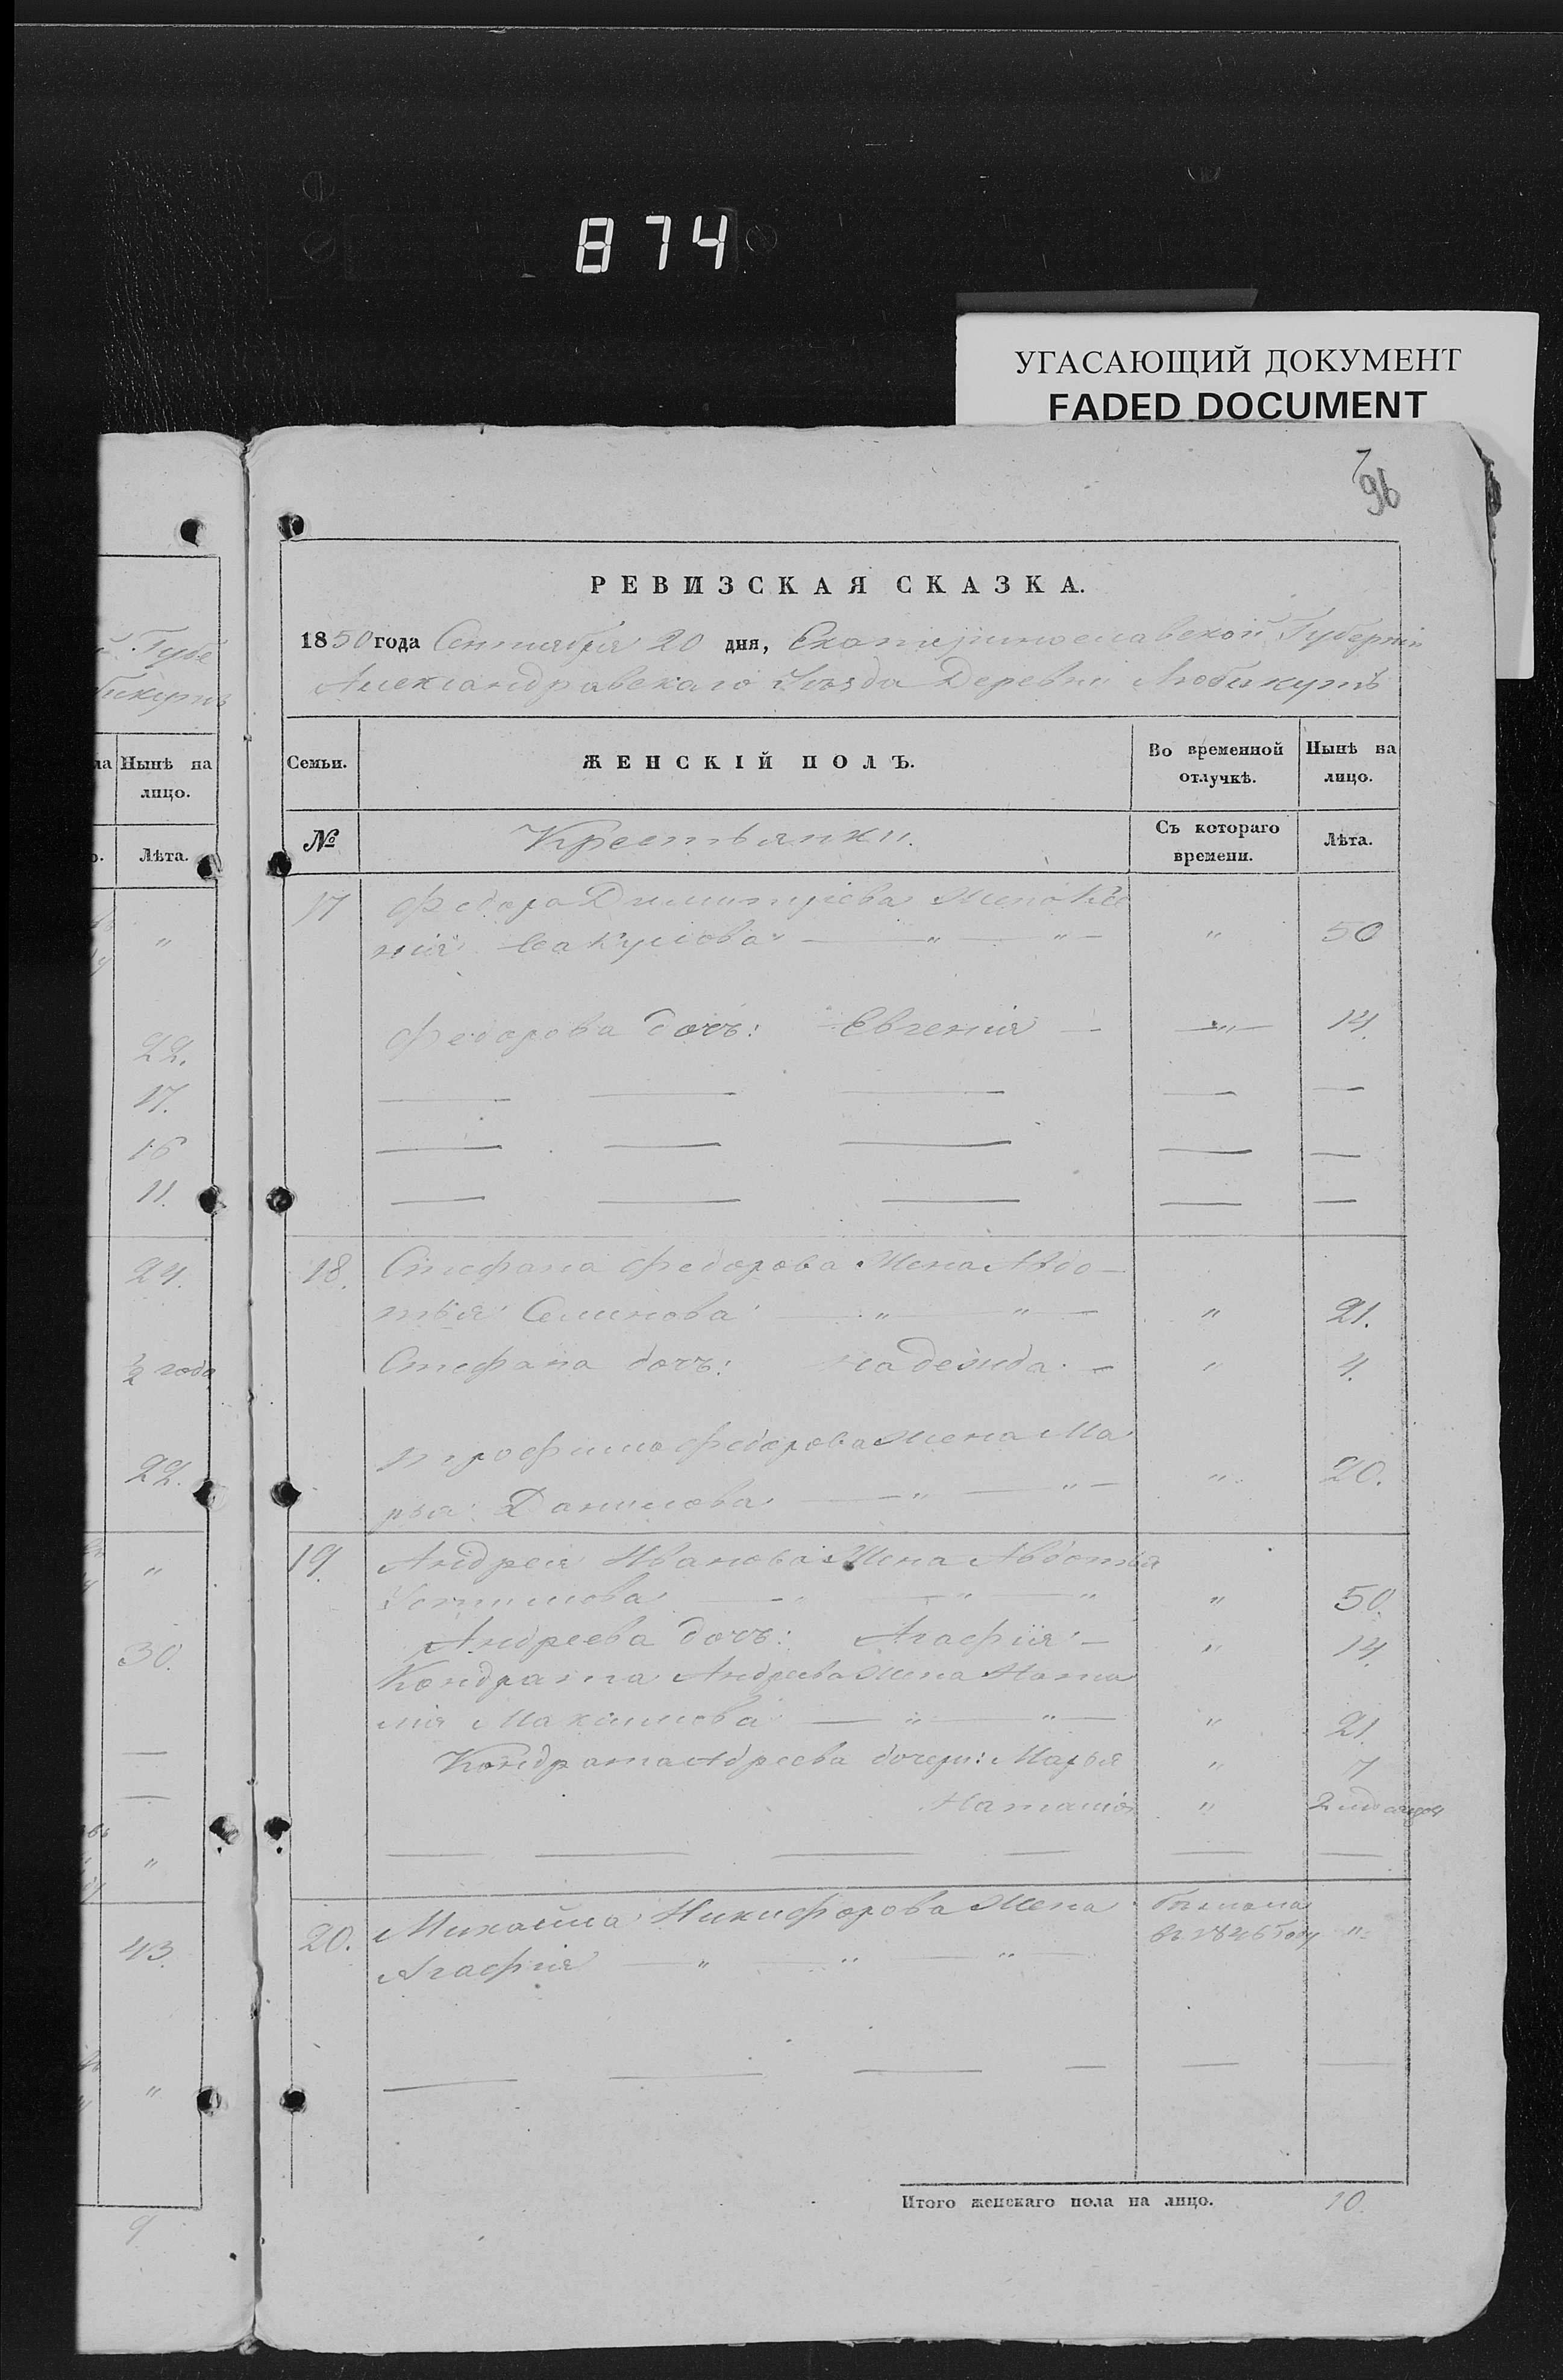 874
УГАСАЮЩИЙ ДОКУМЕНТ
FADED DOCUMENT
96
РЕВИЗСКАЯ СКАЗКА.
1850 года Сентября 20 дня, Екатеринославской Губерніи
Александравскаго Уѣзда Деревни
Семьи. ЖЕНСКІЙ ПОЛЪ. Во временной отлучкѣ. Нынѣ на лицо.
№ Крестьянки. Съ котораго времени. Лѣта.
17 Федора Димитріева Жена
нія " " " 50
Федорова дочь: Евгенія — " 14.
18. Стефана Федорова Жена Авдо-
тья Семинова " " " 21.
Стефана дочь: Надежда — " 4.
Трофима Федорова жена Ма
рья Данилова " " " 20.
19. Андрея Иванова Жена Авдотья
" " " " 50.
Андреева дочь: Агафія — " 14.
Кондрата Андреева жена Ната
лія Максимова " " " 21.
Кондрата Адреева дочери: Марья " 7
Наталія " 2 месяца
20. Михайла Никифорова Жена
Агафія " " " въ 1846 году "
Итого женскаго пола на лицо. 10.
Губе
Нынѣ на
лицо.
Лѣта.
"
22.
17.
16
11.
24.
½ года
22.
"
30.
"
43.
"
9